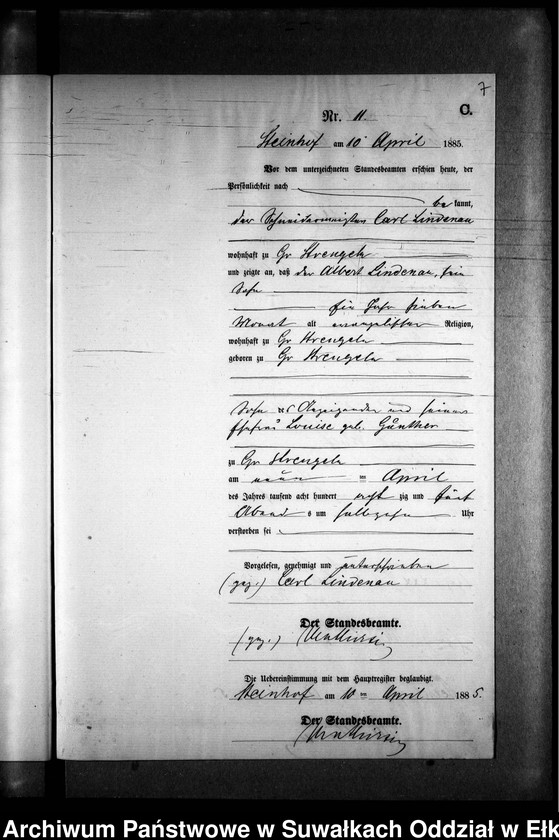 7
C.
Nr. 11.
Steinhof am 10 April 1885.
Vor dem unterzeichneten Standesbeamten erschien heute, der
Persönlichkeit nach
be kannt,
der Schneidermeister Carl Lindenau
wohnhaft zu Gr Strengeln
und zeigte an, daß der Albert Lindenau, sein
Sohn
ein Jahr sieben
Monat alt evangelischer Religion,
wohnhaft zu Gr Strengeln
geboren zu Gr Strengeln
Sohn des Anzeigenden und seiner
Ehefrau Louise geb. Günther
zu Gr Strengeln
am neun ten April
des Jahres tausend acht hundert acht zig und fünf
Abend s um halb zehn Uhr
verstorben sei
Vorgelesen, genehmigt und unterschrieben
(gez.) Carl Lindenau
Der Standesbeamte.
(gez.)
Die Uebereinstimmung mit dem Hauptregister beglaubigt.
Steinhof am 10 ten April 188 5.
Der Standesbeamte.
Archiwum Państwowe w Suwałkach Oddział w Ełk